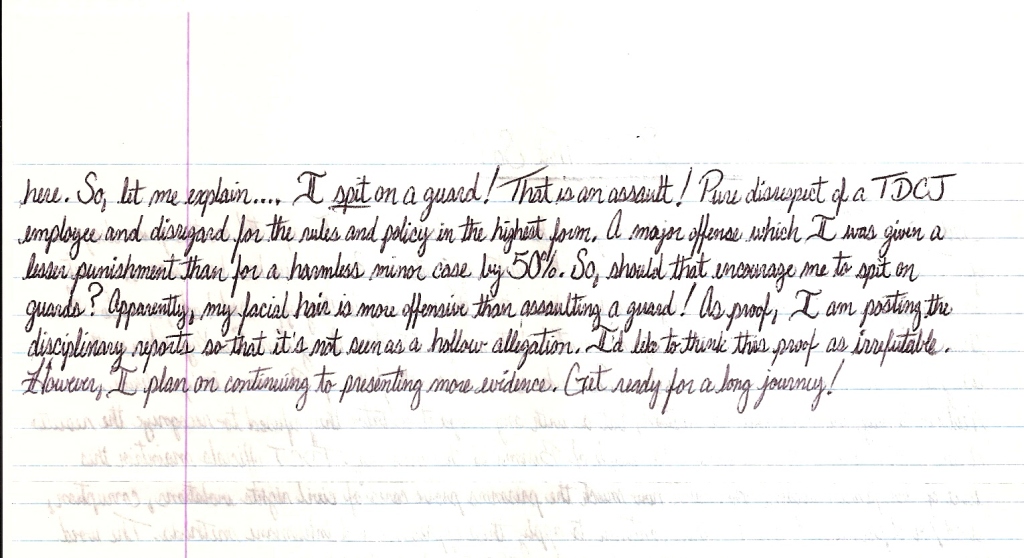 here. So, let me explain.... I spit on a guard! That is an assault! Pure disrespect of a TDCJ
employee and disregard for the rules and policy in the highest form. A major offense which I was given a
lesser punishment than for a harmless minor case by 50%. So, should that encourage me to spit on
guards? Apparently, my facial hair is more offensive than assaulting a guard! As proof, I am posting the
disciplinary reports so that it's not seen as a hollow allegation. I'd like to think this proof as irrefutable.
However, I plan on continuing to presenting more evidence. Get ready for a long journey!